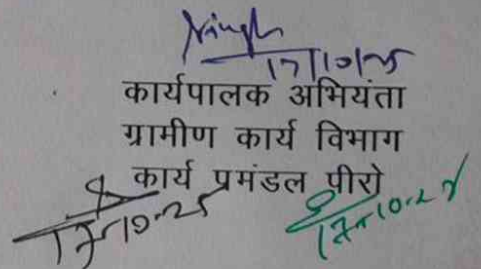 Singh
17/10/25
कार्यपालक अभियंता
ग्रामीण कार्य विभाग
कार्य प्रमंडल पीरो
17-10-25
17-10-25